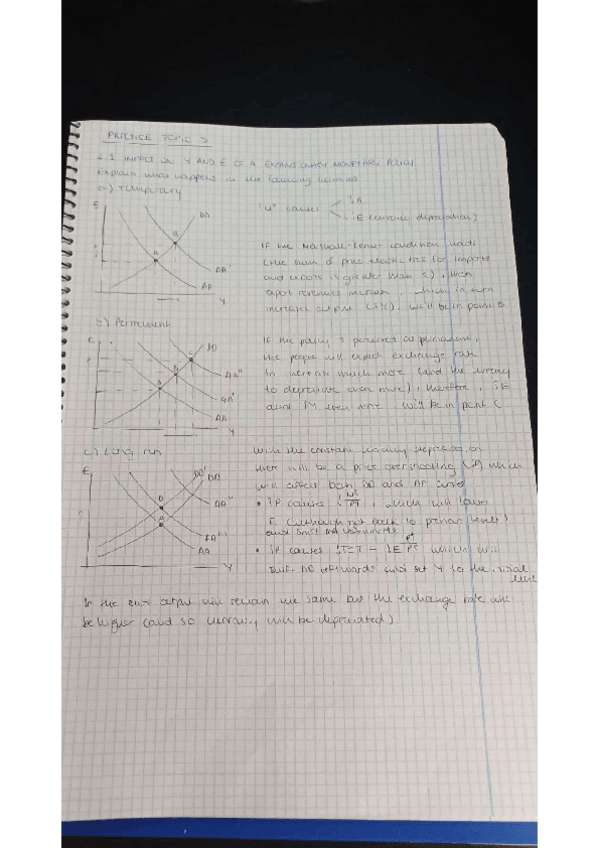 PRACTICE TOPIC 5
IMPACT ON Y AND E OF A EXPANSIONARY MONETARY POLICY
Explain what happens in the following
a) Temporary
E
DD
AA'
AA
Y
causes
E (currency depreciation)
If the Marshall-Lerner condition holds
(the sum of price elasticities for imports
and exports is greater than 1), then
export revenues increase, which in turn
increases output, we'll be in point B
b) Permanent
DD
AA''
AA'
AA
Y
If the policy is perceived as permanent,
the people will expect exchange rate
to increase much more (and the currency
to depreciate even more), therefore,
and even more. Will be in point C
c) Long run
E
DD'
DD
AA''
AA'''
AA
Y
With the constant currency depreciation
there will be a price overshooting which
will affect both DD and AA curves
causes, which will lower
E (although not back to previous levels)
and shift AA downwards
causes which will
shift DD leftwards and set Y to the initial
level
In the end output will remain the same but the exchange rate will
be higher (and so currency will be depreciated)